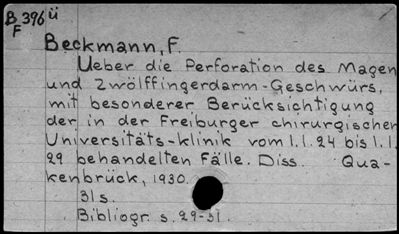 B 396 ü
F
Beckmann, F.
Ueber die Perforation des Magen
und Zwölffingerdarm-Geschwürs,
mit besonderer Berücksichtigung
der in der Freiburger chirurgischen
Universitäts-klinik vom 1.1.24 bis 1.1.
29 behandelten Fälle. Diss. Qua-
kenbrück, 1930.
31 s.
Bibliogr. s. 29-31.